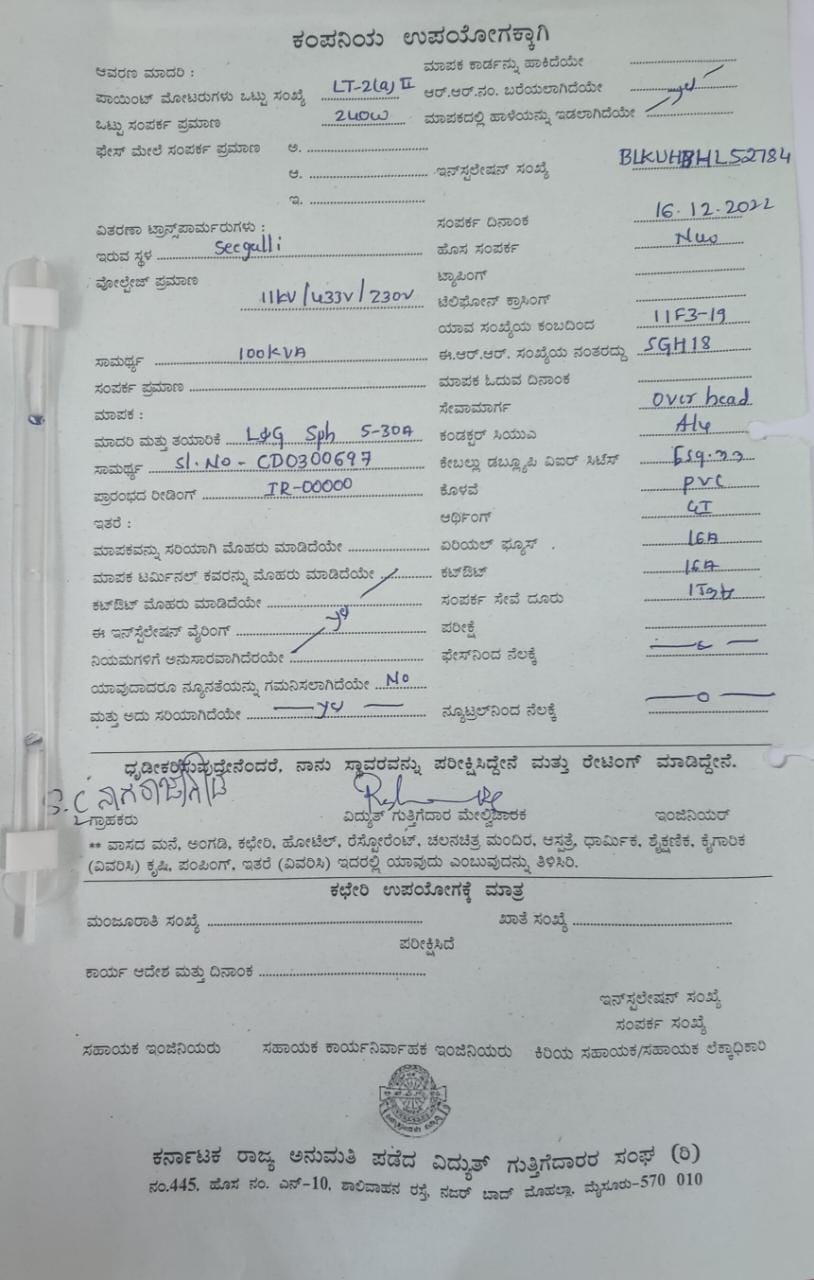 ಕಂಪನಿಯ ಉಪಯೋಗಕ್ಕಾಗಿ
ಆವರಣ ಮಾದರಿ :
ಮಾಪಕ ಕಾರ್ಡನ್ನು ಹಾಕಿದೆಯೇ
ಪಾಯಿಂಟ್ ಮೋಟರುಗಳು ಒಟ್ಟು ಸಂಖ್ಯೆ LT-2(a) II
ಆರ್.ಆರ್.ನಂ. ಬರೆಯಲಾಗಿದೆಯೇ
ಒಟ್ಟು ಸಂಪರ್ಕ ಪ್ರಮಾಣ 240W
ಮಾಪಕದಲ್ಲಿ ಹಾಳೆಯನ್ನು ಇಡಲಾಗಿದೆಯೇ
ಫೇಸ್ ಮೇಲೆ ಸಂಪರ್ಕ ಪ್ರಮಾಣ ಅ.
ಆ.
ಇನ್‌ಸ್ಟಲೇಷನ್ ಸಂಖ್ಯೆ
ಇ.
ಸಂಪರ್ಕ ದಿನಾಂಕ 16.12.2022
ವಿತರಣಾ ಟ್ರಾನ್ಸ್‌ಫಾರ್ಮರುಗಳು :
ಇರುವ ಸ್ಥಳ Seegalli
ಹೊಸ ಸಂಪರ್ಕ
ವೋಲ್ಟೇಜ್ ಪ್ರಮಾಣ 11KV/433V/230V
ಟ್ಯಾಪಿಂಗ್
ಟೆಲಿಫೋನ್ ಕ್ರಾಸಿಂಗ್
ಯಾವ ಸಂಖ್ಯೆಯ ಕಂಬದಿಂದ 11F3-19
ಸಾಮರ್ಥ್ಯ 100KVA
ಈ.ಆರ್.ಆರ್. ಸಂಖ್ಯೆಯ ನಂತರದ್ದು SGH18
ಸಂಪರ್ಕ ಪ್ರಮಾಣ
ಮಾಪಕ ಓದುವ ದಿನಾಂಕ
ಮಾಪಕ :
ಸೇವಾಮಾರ್ಗ Over head
ಮಾದರಿ ಮತ್ತು ತಯಾರಿಕೆ L&G Sph 5-30A
ಕಂಡಕ್ಟರ್ ಸಿಯುಎ
ಸಾಮರ್ಥ್ಯ Sl.No - CD0300697
ಕೇಬಲ್ಲು ಡಬ್ಲ್ಯೂಪಿ ವಿಐಆರ್ ಸಿಟಿಸ್
ಪ್ರಾರಂಭದ ರೀಡಿಂಗ್ IR-00000
ಕೊಳವೆ PVC
ಇತರೆ :
ಆರ್ಥಿಂಗ್ GI
ಮಾಪಕವನ್ನು ಸರಿಯಾಗಿ ಮೊಹರು ಮಾಡಿದೆಯೇ
ಏರಿಯಲ್ ಫ್ಯೂಸ್ 16A
ಮಾಪಕ ಟರ್ಮಿನಲ್ ಕವರನ್ನು ಮೊಹರು ಮಾಡಿದೆಯೇ
ಕಟ್‌ಔಟ್ 16A
ಕಟ್‌ಔಟ್ ಮೊಹರು ಮಾಡಿದೆಯೇ
ಸಂಪರ್ಕ ಸೇವೆ ದೂರು
ಈ ಇನ್‌ಸ್ಟೆಲೇಷನ್ ವೈರಿಂಗ್
ಪರೀಕ್ಷೆ
ನಿಯಮಗಳಿಗೆ ಅನುಸಾರವಾಗಿದೆರಯೇ
ಫೇಸ್‌ನಿಂದ ನೆಲಕ್ಕೆ
ಯಾವುದಾದರೂ ನ್ಯೂನತೆಯನ್ನು ಗಮನಿಸಲಾಗಿದೆಯೇ No
ಮತ್ತು ಅದು ಸರಿಯಾಗಿದೆಯೇ
ನ್ಯೂಟ್ರಲ್‌ನಿಂದ ನೆಲಕ್ಕೆ
ಧೃಡೀಕರಿಸುವುದೇನೆಂದರೆ, ನಾನು ಸ್ಥಾವರವನ್ನು ಪರೀಕ್ಷಿಸಿದ್ದೇನೆ ಮತ್ತು ರೇಟಿಂಗ್ ಮಾಡಿದ್ದೇನೆ.
ಗ್ರಾಹಕರು ವಿದ್ಯುತ್ ಗುತ್ತಿಗೆದಾರ ಮೇಲ್ವಿಚಾರಕ ಇಂಜಿನಿಯರ್
** ವಾಸದ ಮನೆ, ಅಂಗಡಿ, ಕಛೇರಿ, ಹೋಟೆಲ್, ರೆಸ್ಟೋರೆಂಟ್, ಚಲನಚಿತ್ರ ಮಂದಿರ, ಆಸ್ಪತ್ರೆ, ಧಾರ್ಮಿಕ, ಶೈಕ್ಷಣಿಕ, ಕೈಗಾರಿಕ
(ವಿವರಿಸಿ) ಕೃಷಿ, ಪಂಪಿಂಗ್, ಇತರೆ (ವಿವರಿಸಿ) ಇದರಲ್ಲಿ ಯಾವುದು ಎಂಬುವುದನ್ನು ತಿಳಿಸಿರಿ.
ಕಛೇರಿ ಉಪಯೋಗಕ್ಕೆ ಮಾತ್ರ
ಮಂಜೂರಾತಿ ಸಂಖ್ಯೆ ಖಾತೆ ಸಂಖ್ಯೆ
ಪರೀಕ್ಷಿಸಿದೆ
ಕಾರ್ಯ ಆದೇಶ ಮತ್ತು ದಿನಾಂಕ
ಇನ್‌ಸ್ಟಲೇಷನ್ ಸಂಖ್ಯೆ
ಸಂಪರ್ಕ ಸಂಖ್ಯೆ
ಸಹಾಯಕ ಇಂಜಿನಿಯರು ಸಹಾಯಕ ಕಾರ್ಯನಿರ್ವಾಹಕ ಇಂಜಿನಿಯರು ಕಿರಿಯ ಸಹಾಯಕ/ಸಹಾಯಕ ಲೆಕ್ಕಾಧಿಕಾರಿ
ಕರ್ನಾಟಕ ರಾಜ್ಯ ಅನುಮತಿ ಪಡೆದ ವಿದ್ಯುತ್ ಗುತ್ತಿಗೆದಾರರ ಸಂಘ (ರಿ)
ನಂ.445, ಹೊಸ ನಂ. ಎನ್-10, ಶಾಲಿವಾಹನ ರಸ್ತೆ, ನಜರ್ ಬಾದ್ ಮೊಹಲ್ಲಾ, ಮೈಸೂರು-570 010